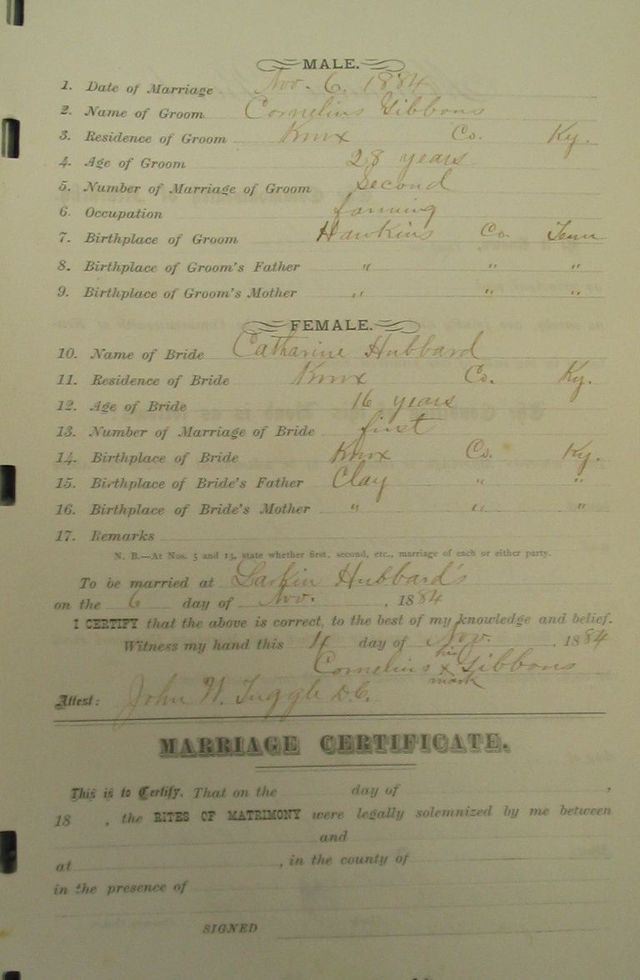 MALE.
1. Date of Marriage Nov. 6, 1884
2. Name of Groom Cornelius Gibbons
3. Residence of Groom Knox Co. Ky.
4. Age of Groom 28 years
5. Number of Marriage of Groom Second
6. Occupation farming
7. Birthplace of Groom Hawkins Co Tenn
8. Birthplace of Groom's Father " " "
9. Birthplace of Groom's Mother " " "
FEMALE.
10. Name of Bride Catharine Hubbard
11. Residence of Bride Knox Co. Ky.
12. Age of Bride 16 years
13. Number of Marriage of Bride first
14. Birthplace of Bride Knox Co. Ky.
15. Birthplace of Bride's Father Clay " "
16. Birthplace of Bride's Mother " " "
17. Remarks
N. B.—At Nos. 5 and 13, state whether first, second, etc., marriage of each or either party.
To be married at Larkin Hubbard's
on the 6 day of Nov. , 1884
I CERTIFY that the above is correct, to the best of my knowledge and belief.
Witness my hand this 4 day of Nov. 1884
his
Cornelius x Gibbons
mark
Attest: John W. Tuggle D.C.
MARRIAGE CERTIFICATE.
This is to Certify, That on the day of ,
18 , the RITES OF MATRIMONY were legally solemnized by me between
and
at , in the county of
in the presence of
SIGNED